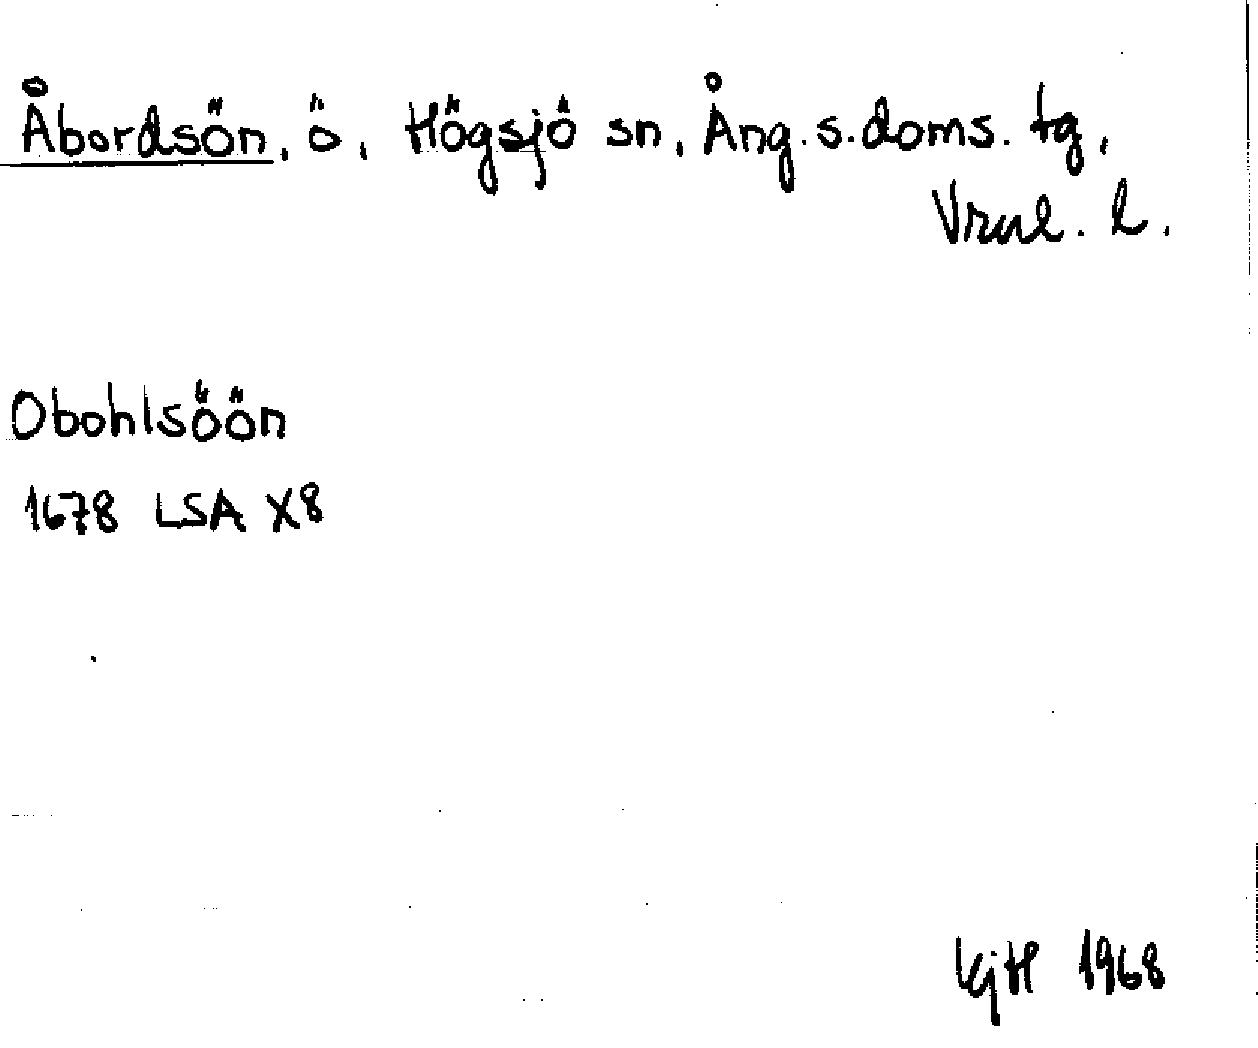 Åbordsön, ö, Högsjö sn, Ång. s. doms. tg,
Vrnl. l.
Obohlsöön
1678 LSA X8
KjH 1968